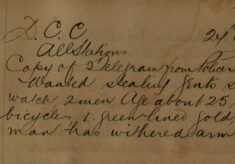 D. C. C 24th
All Stations
Copy of Telegram from Police
Wanted stealing Gents s
watch 2 men Age about 25,
bicycles 1. green lined gold,
man has withered arm